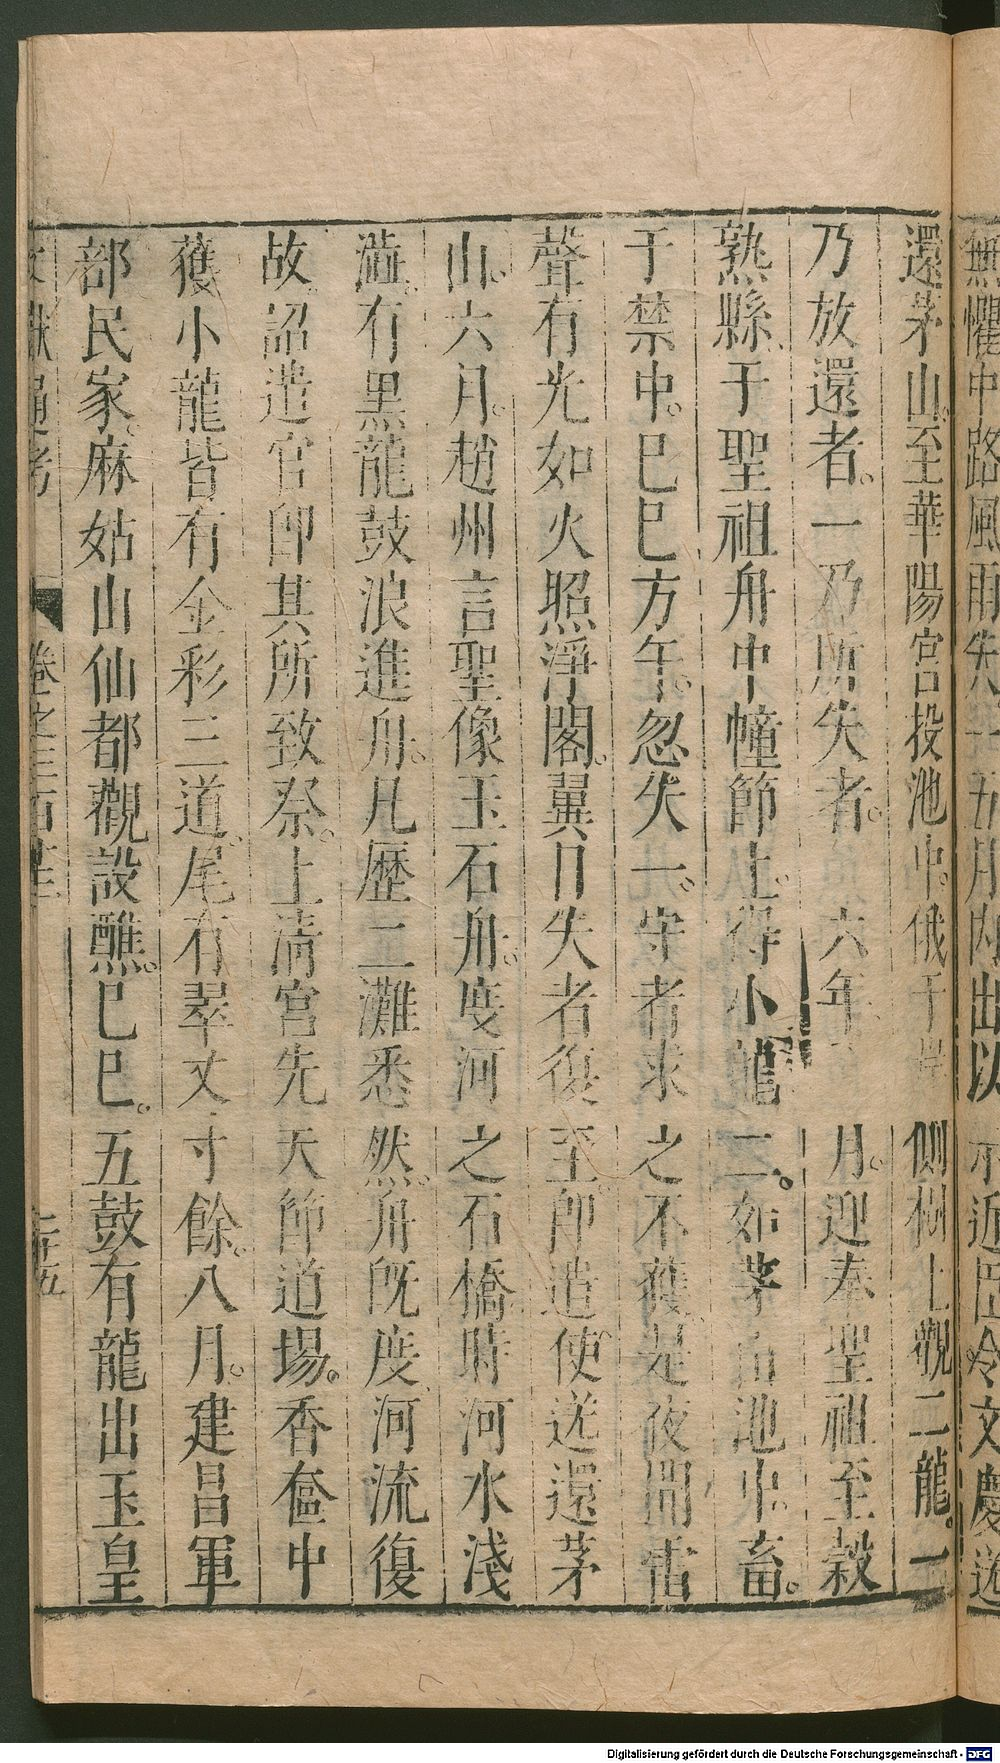 無懼中路風雨失一五月內出以示近臣令文慶送
還茅山。至華陽宮投池中。俄于岸側樹上觀二龍。一
乃放還者。一乃所失者。六年 月。迎奉聖祖至穀
熟縣、于聖祖舟中幢節上。得小龍二。如茅山池中。畜。
于禁中。巳巳方午。忽失一。守者求之不獲。是夜聞雷
聲有光如火照淨閣。翼日失者復至。即遣使送還茅
山。六月。趙州言聖像玉石舟。度河之石橋時河水淺
澁。有黑龍鼓浪進舟。凡歷二灘悉然。舟旣度、河流復
故。詔遣官即其所致祭。上淸宮先天節道場。香奩中
獲小龍皆有金彩三道。尾有翠文寸餘。八月。建昌軍
部民家。麻姑山仙都觀設醮。巳巳。五鼓有龍出玉皇
文獻通考 卷之三百十三 二十五
Digitalisierung gefördert durch die Deutsche Forschungsgemeinschaft - DFG